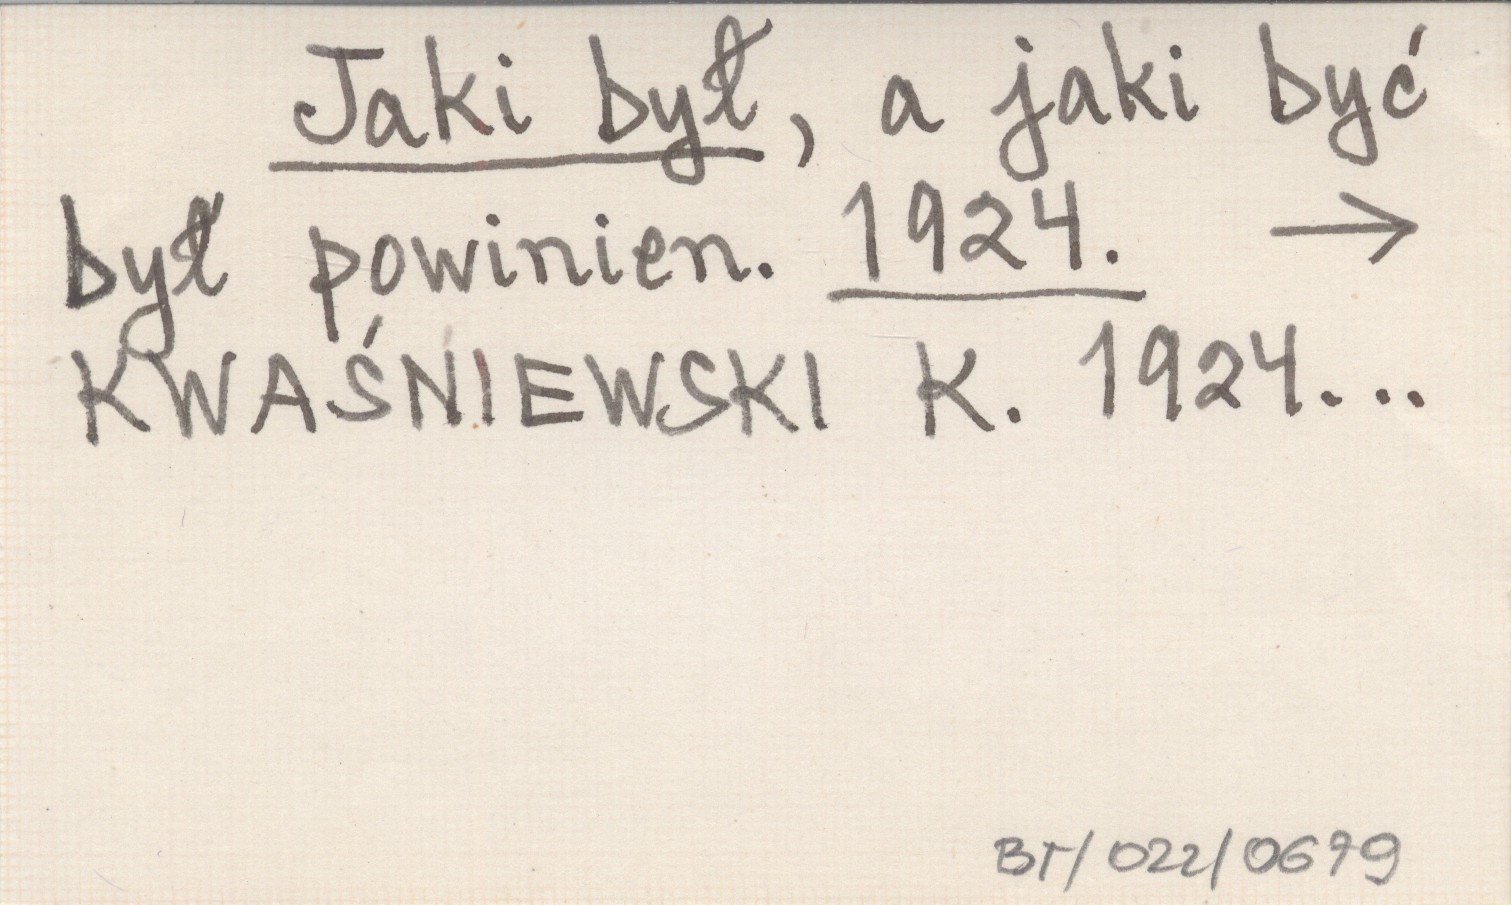 Jaki był, a jaki być
był powinien. 1924. →
KWAŚNIEWSKI K. 1924...
BT/022/0679